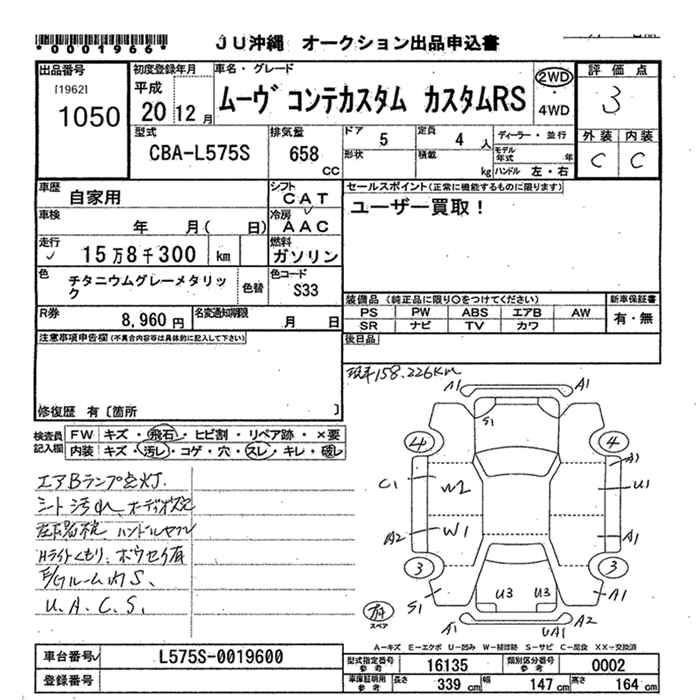 *0001966*
JU沖縄 オークション出品申込書
出品番号
[1962]
1050
初度登録年月
平成
20 12月
車名・グレード
ムーヴ コンテカスタム カスタムRS
2WD
・
4WD
評価点
3
外装 内装
C C
型式
CBA-L575S
排気量
658
CC
ドア
5
定員
4人
形状
積載
kg
ディーラー・並行
モデル年式 年
ハンドル 左・右
車歴
自家用
シフト
CAT
車検
年 月( 日)
冷房
AAC
走行
15万8千300 km
燃料
ガソリン
色
チタニウムグレーメタリック
色替
色コード
S33
R券
8,960円
名変通知期限
月 日
セールスポイント(正常に機能するものに限ります)
ユーザー買取!
装備品 (純正品に限り○をつけてください)
PS PW ABS エアB AW
SR ナビ TV カワ
新車保証書
有・無
後日品
注意事項申告欄(不具合内容等は具体的に記入して下さい)
修復歴 有〔箇所 〕
現車158.226Km
検査員
記入欄
FW キズ・飛石・ヒビ割・リペア跡・×要
内装 キズ・汚レ・コゲ・穴・スレ・キレ・破レ
エアBランプ点灯.
シート汚れ、オーディオ欠
ハンドル
Hライトくもり.
U.A.C.S.
A1 A1
S1
4 4
A1
C1 W2 U1
A2 W1 A1
3 3
U3 U3
S1 A1
スペア
A1 UA1 A2
A-キズ E-エクボ U-凹み W-補修跡 S-サビ C-腐食 XX-交換済
車台番号
L575S-0019600
登録番号
型式指定番号
参考
16135
類別区分番号
参考
0002
車庫証明用
参考
長さ 339 cm 幅 147 cm 高さ 164 cm